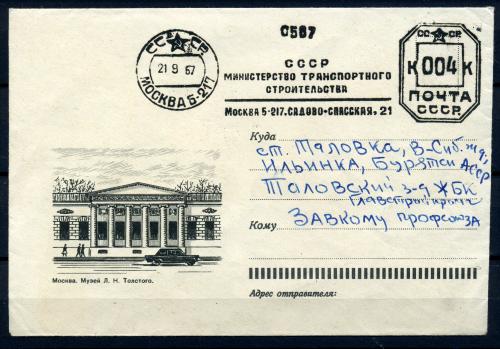 0587
СССР
21 9 67
МОСКВА Б-217
СССР
МИНИСТЕРСТВО ТРАНСПОРТНОГО
СТРОИТЕЛЬСТВА
МОСКВА Б-217. САДОВО-СПАССКАЯ, 21
СССР
К 004 К
ПОЧТА
СССР
Куда ст. Таловка, В-Сиб. жд,
Ильинка, Бурятск АССР
Таловский з-д ЖБК
Главстройпром
Кому Завкому профсоюза
Москва. Музей Л. Н. Толстого.
Адрес отправителя: